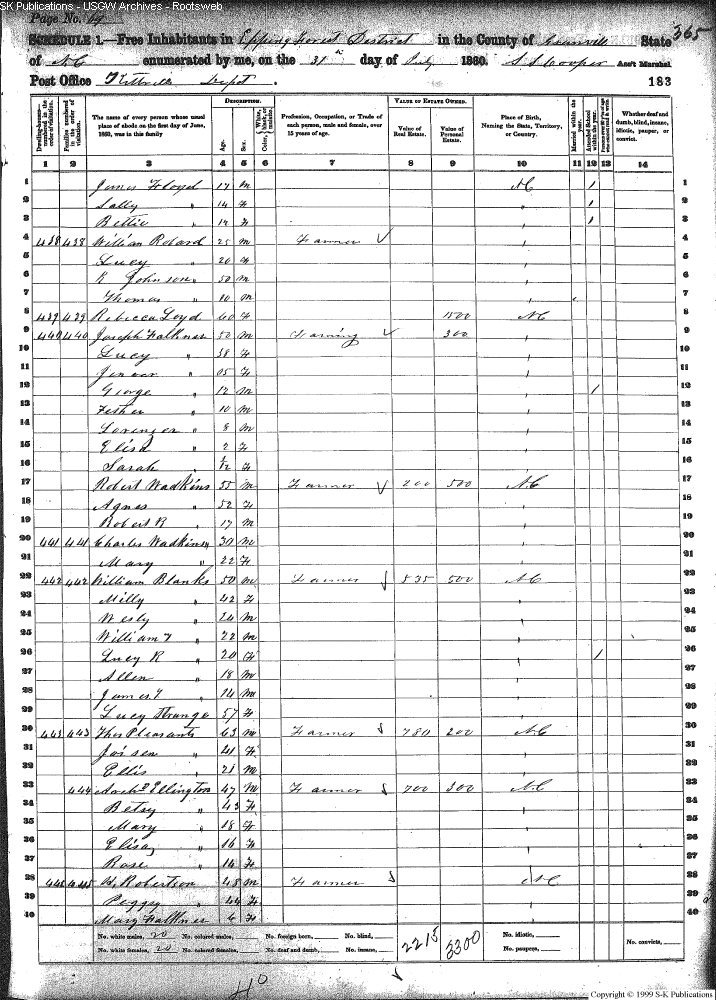 S-K Publications - USGW Archives - Rootsweb
Page No. 64
365
SCHEDULE 1.—Free Inhabitants in Epping Forest District in the County of Granville State
of NC enumerated by me, on the 31st day of July 1860. Ass't Marshal
Post Office Kittrells Depot. 183
Dwelling-houses—numbered in the order of visitation.
Families numbered in the order of visitation.
The name of every person whose usual place of abode on the first day of June, 1860, was in this family
DESCRIPTION.
Age.
Sex.
Color, White, black, or mulatto.
Profession, Occupation, or Trade of each person, male and female, over 15 years of age.
VALUE OF ESTATE OWNED.
Value of Real Estate.
Value of Personal Estate.
Place of Birth, Naming the State, Territory, or Country.
Married within the year.
Attended School within the year.
Whether deaf and dumb, blind, insane, idiotic, pauper, or convict.
1 2 3 4 5 6 7 8 9 10 11 12 13 14
1 James Floyd 17 m NC / 1
2 Sally " 14 f / 2
3 Bettie " f / 3
4 438 438 William Roberd 25 m Farmer 4
5 Lucy " 20 5
6 Johnson " 50 m 6
7 Thomas " 10 m 7
8 439 439 Rebecca Loyd 60 f 1500 NC 8
9 440 440 Joseph Falkner 50 m Farming 300 9
10 Lucy " 38 f 10
11 " 15 f 11
12 George " 12 m / 12
13 " 10 m 13
14 " 8 m 14
15 Elisa " 2 f 15
16 Sarah " f 16
17 Robert Wadkins 55 m Farmer 200 500 NC 17
18 Agnes " 52 f 18
19 Robert R " 17 m 19
20 441 441 Charles Wadkins 30 m 20
21 Mary " 22 f 21
22 442 442 William Blanks 50 m Farmer 535 500 NC 22
23 Milly " 42 f 23
24 Wesly " 24 m 24
25 William T " 22 m 25
26 Lucy R " 20 f / 26
27 Allen " 18 m 27
28 James T " 14 m 28
29 Lucy Strange 57 f 29
30 443 443 Thos Pleasants 63 m Farmer 780 200 NC 30
31 " 41 f 31
32 Ellis " 21 m 32
33 444 Ellington 47 m Farmer 700 300 NC 33
34 Betsy " 43 f 34
35 Mary " 18 f 35
36 Elisa " 16 f 36
37 Rose " 14 f 37
38 445 Robertson 48 m Farmer NC 38
39 Peggy " 44 f 39
40 Mary Falkner 6 f 40
No. white males, 20 No. colored males, No. foreign born, No. blind, 2215 3300 No. idiotic, No. convicts,
No. white females, 20 No. colored females, No. deaf and dumb, No. insane, No. paupers,
40
Copyright © 1999 S-K Publications